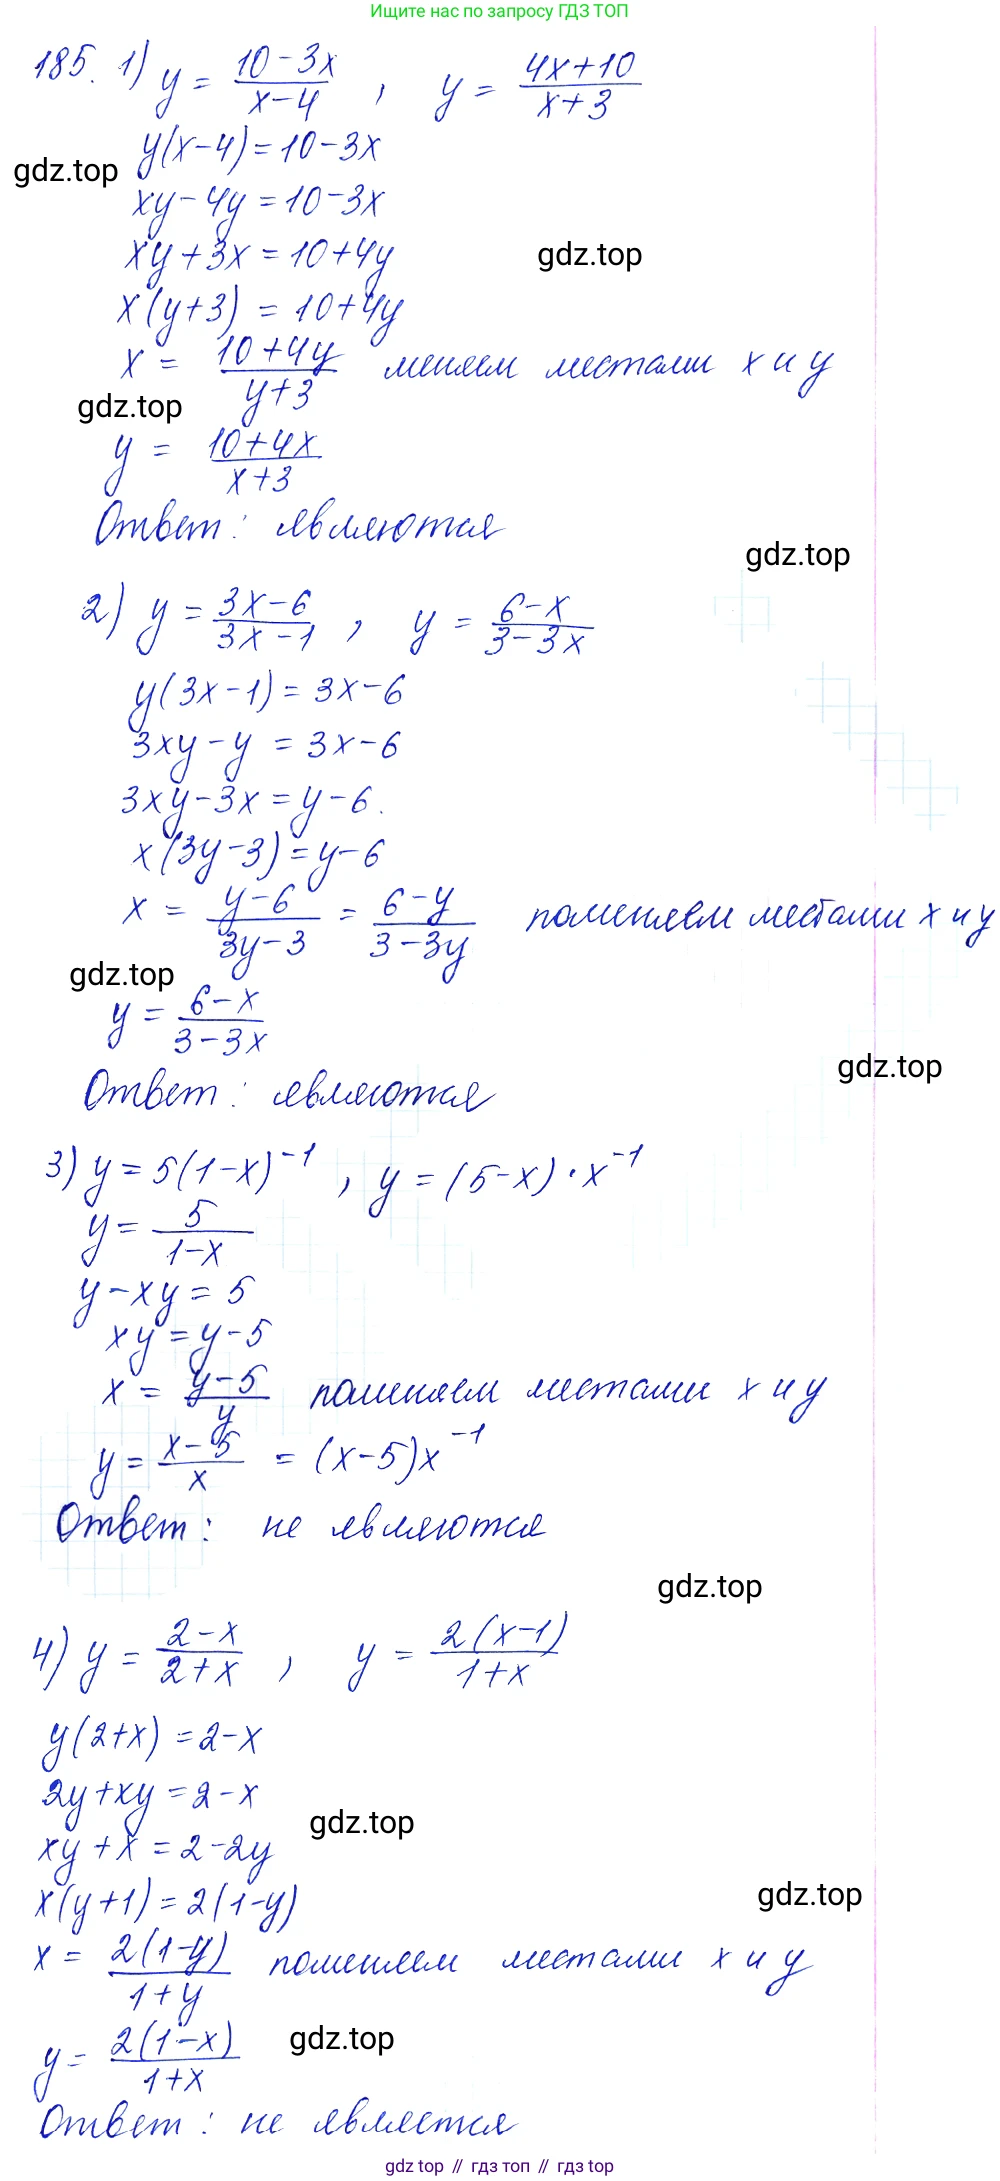 Ищите нас по запросу ГДЗ ТОП
185. 1) y = (10-3x)/(x-4) , y = (4x+10)/(x+3)
y(x-4)=10-3x
gdz.top
xy-4y=10-3x
xy+3x=10+4y
gdz.top
x(y+3) = 10+4y
x = (10+4y)/(y+3) меняем местами x и y
gdz.top
y = (10+4x)/(x+3)
Ответ: являются
gdz.top
2) y = (3x-6)/(3x-1) , y = (6-x)/(3-3x)
y(3x-1)=3x-6
3xy-y = 3x-6
3xy-3x=y-6.
x(3y-3)=y-6
x = (y-6)/(3y-3) = (6-y)/(3-3y) поменяем местами x и y
gdz.top
y = (6-x)/(3-3x)
gdz.top
Ответ: являются
3) y = 5(1-x)⁻¹ , y = (5-x)·x⁻¹
y = 5/(1-x)
y-xy = 5
xy = y-5
x = (y-5)/y поменяем местами x и y
y = (x-5)/x = (x-5)x⁻¹
Ответ: не являются
gdz.top
4) y = (2-x)/(2+x) , y = 2(x-1)/(1+x)
y(2+x) = 2-x
2y+xy = 2-x
gdz.top
xy+x = 2-2y
x(y+1) = 2(1-y)
gdz.top
x = 2(1-y)/(1+y) поменяем местами x и y
y = 2(1-x)/(1+x)
gdz.top
Ответ: не является
gdz top // гдз топ // gdz top